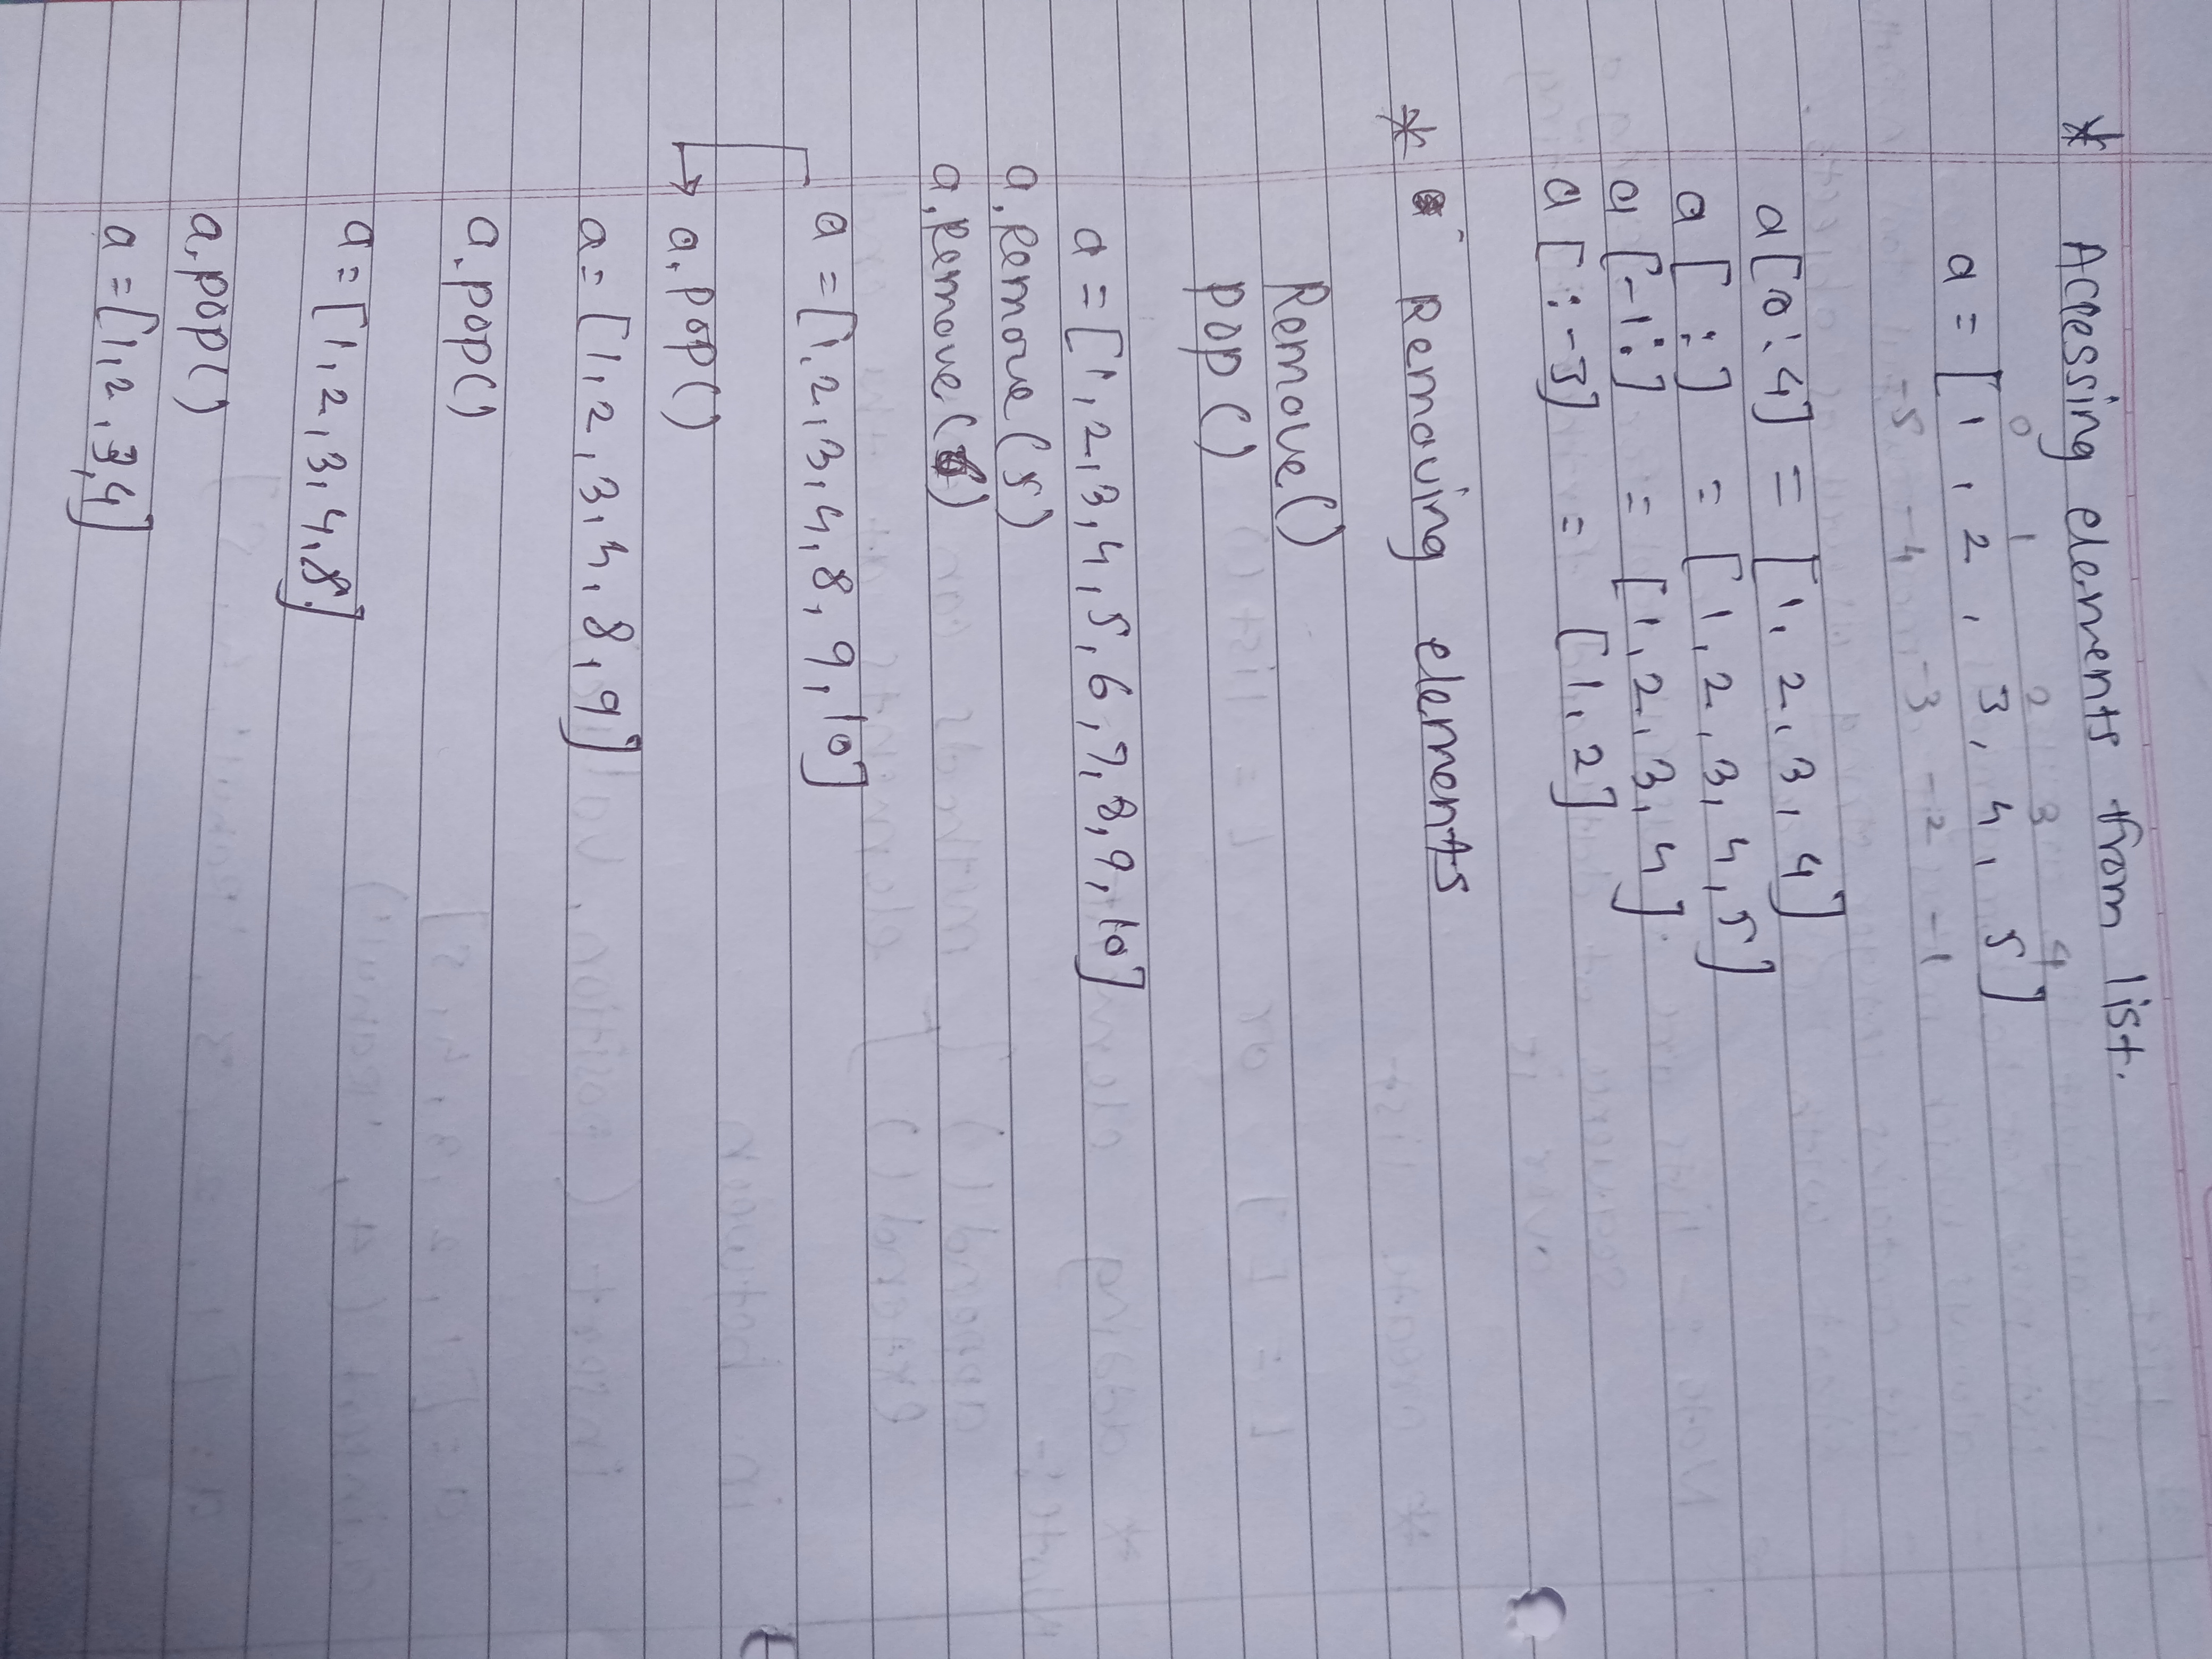 * Accessing elements from list.
0 1 2 3 4
a = [1, 2, 3, 4, 5]
-5 -4 -3 -2 -1
a[0:4] = [1, 2, 3, 4]
a[:] = [1, 2, 3, 4, 5]
a[-1:] = [1, 2, 3, 4]
a[:-3] = [1, 2]
* Removing elements
Remove()
pop()
a = [1, 2, 3, 4, 5, 6, 7, 8, 9, 10]
a.Remove(5)
a.Remove(6)
a = [1, 2, 3, 4, 8, 9, 10]
a.pop()
a = [1, 2, 3, 4, 8, 9]
a.pop()
a = [1, 2, 3, 4, 8]
a.pop()
a = [1, 2, 3, 4]